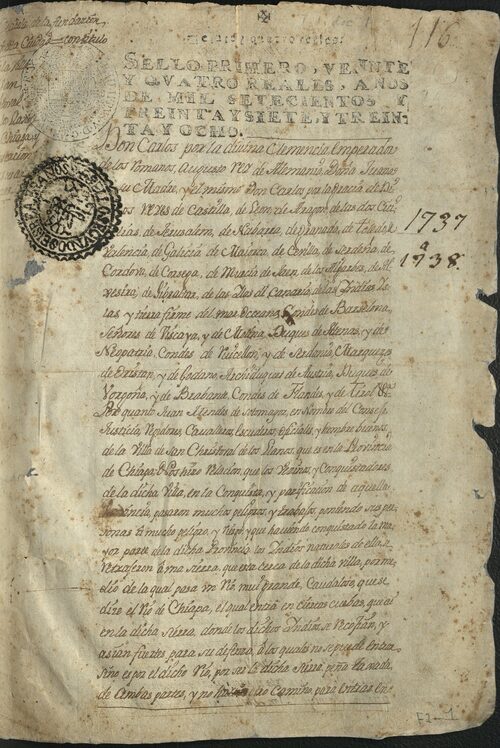 116
Veinte y quatro reales.
SELLO PRIMERO, VEINTE
Y QVATRO REALES, AÑOS
DE MIL SETECIENTOS Y
TREINTA Y SIETE, Y TREIN-
TA Y OCHO.
Don Carlos por la divina Clemencia Emperador
de los Romanos, Augusto Rey de Alemania, Doña Juana
su Madre, y el mismo Don Carlos por la gracia de Dios
Reyes de Castilla, de Leon, de Aragon, de las dos Cici-
lias, de Jerusalem, de Nabarra, de Granada, de Toledo, de
Valencia, de Galicia, de Mallorca, de Cevilla, de Serdeña, de
Cordova, de Corsega, de Murcia, de Jaen, de los Algarbes, de Al-
gesira, de Gibraltar, de las Islas de Canaria, de las Indias Is-
las y tierra firme del mar Oceano, Condes de Barselona,
Señores de Viscaya, y de Molina, Duques de Atenas, y de
Neopatria, Condes de Ruicellon, y de Serdania, Marquezes
de Oristan, y de Gociano, Archiduques de Austria, Duques de
Vorgoña, y de Brabante, Condes de Flandes, y de Tirol &a.
Por quanto Juan Mendes de Sotomayor, en nombre del Consejo
Justicia, Regidores, Cavalleros, escuderos, oficiales, y hombres buenos,
de la Villa de San Christoval de los Llanos, que es en la Provincia
de Chiapa Nos hizo relacion, que los Vecinos, y Conquistadores
de la dicha Villa, en la Conquista, y pacificacion de aquella
Provincia, pasaron muchos peligros, y trabajos, poniendo sus per-
sonas á mucho peligro, y riesgo, y que haviendo conquistado la ma-
yor parte de la dicha Provincia los Indios naturales de ella, se
retrajeron á una sierra, que esta cerca de la dicha villa, por me-
dio de la qual pasa un Rio mui grande, Caudaloso, que se
dice el Rio de Chiapa, el qual entra en ciertas cuebas, que ai
en la dicha sierra, donde los dichos Indios se recojian, y
asian fuertes para su defensa, á los quales no se puede entrar
sino es por el dicho Rio, por ser la dicha sierra, peña tajada,
de ambas partes, y no camino para entrar en
1737
a
1738.